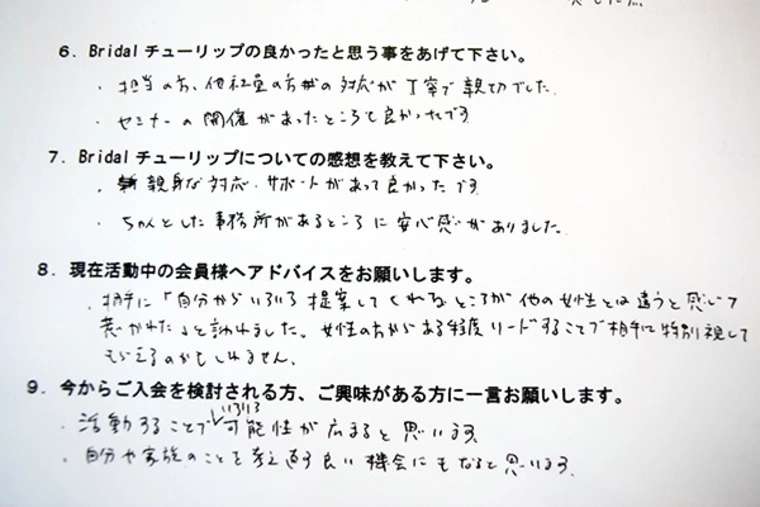 6．Bridal チューリップの良かったと思う事をあげて下さい。
・担当の方、他社員の方々の対応が丁寧で親切でした。
・セミナーの開催があったところも良かったです。
7．Bridal チューリップについての感想を教えて下さい。
・親身な対応・サポートがあって良かったです。
・ちゃんとした事務所があるところに安心感がありました。
8．現在活動中の会員様へアドバイスをお願いします。
・相手に「自分からいろいろ提案してくれるところが他の女性とは違うと感じて
惹かれた」と言われました。女性の方からある程度リードすることで相手に特別視して
もらえるのかもしれません。
9．今からご入会を検討される方、ご興味がある方に一言お願いします。
・活動することでいろいろ可能性が広まると思います。
・自分や家族のことを考え直す良い機会にもなると思います。